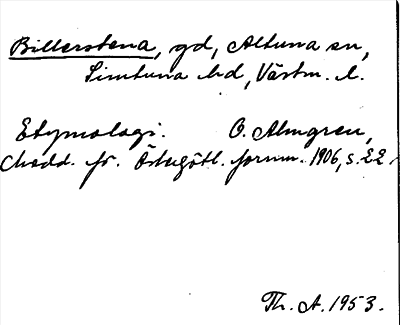 Billerstena, gd, Altuna sn,
Simtuna hd, Västm. l.
Etymologi. O. Almgren,
Medd. fr. Östergötl. fornm. 1906, s. 22.
Th. A. 1953.